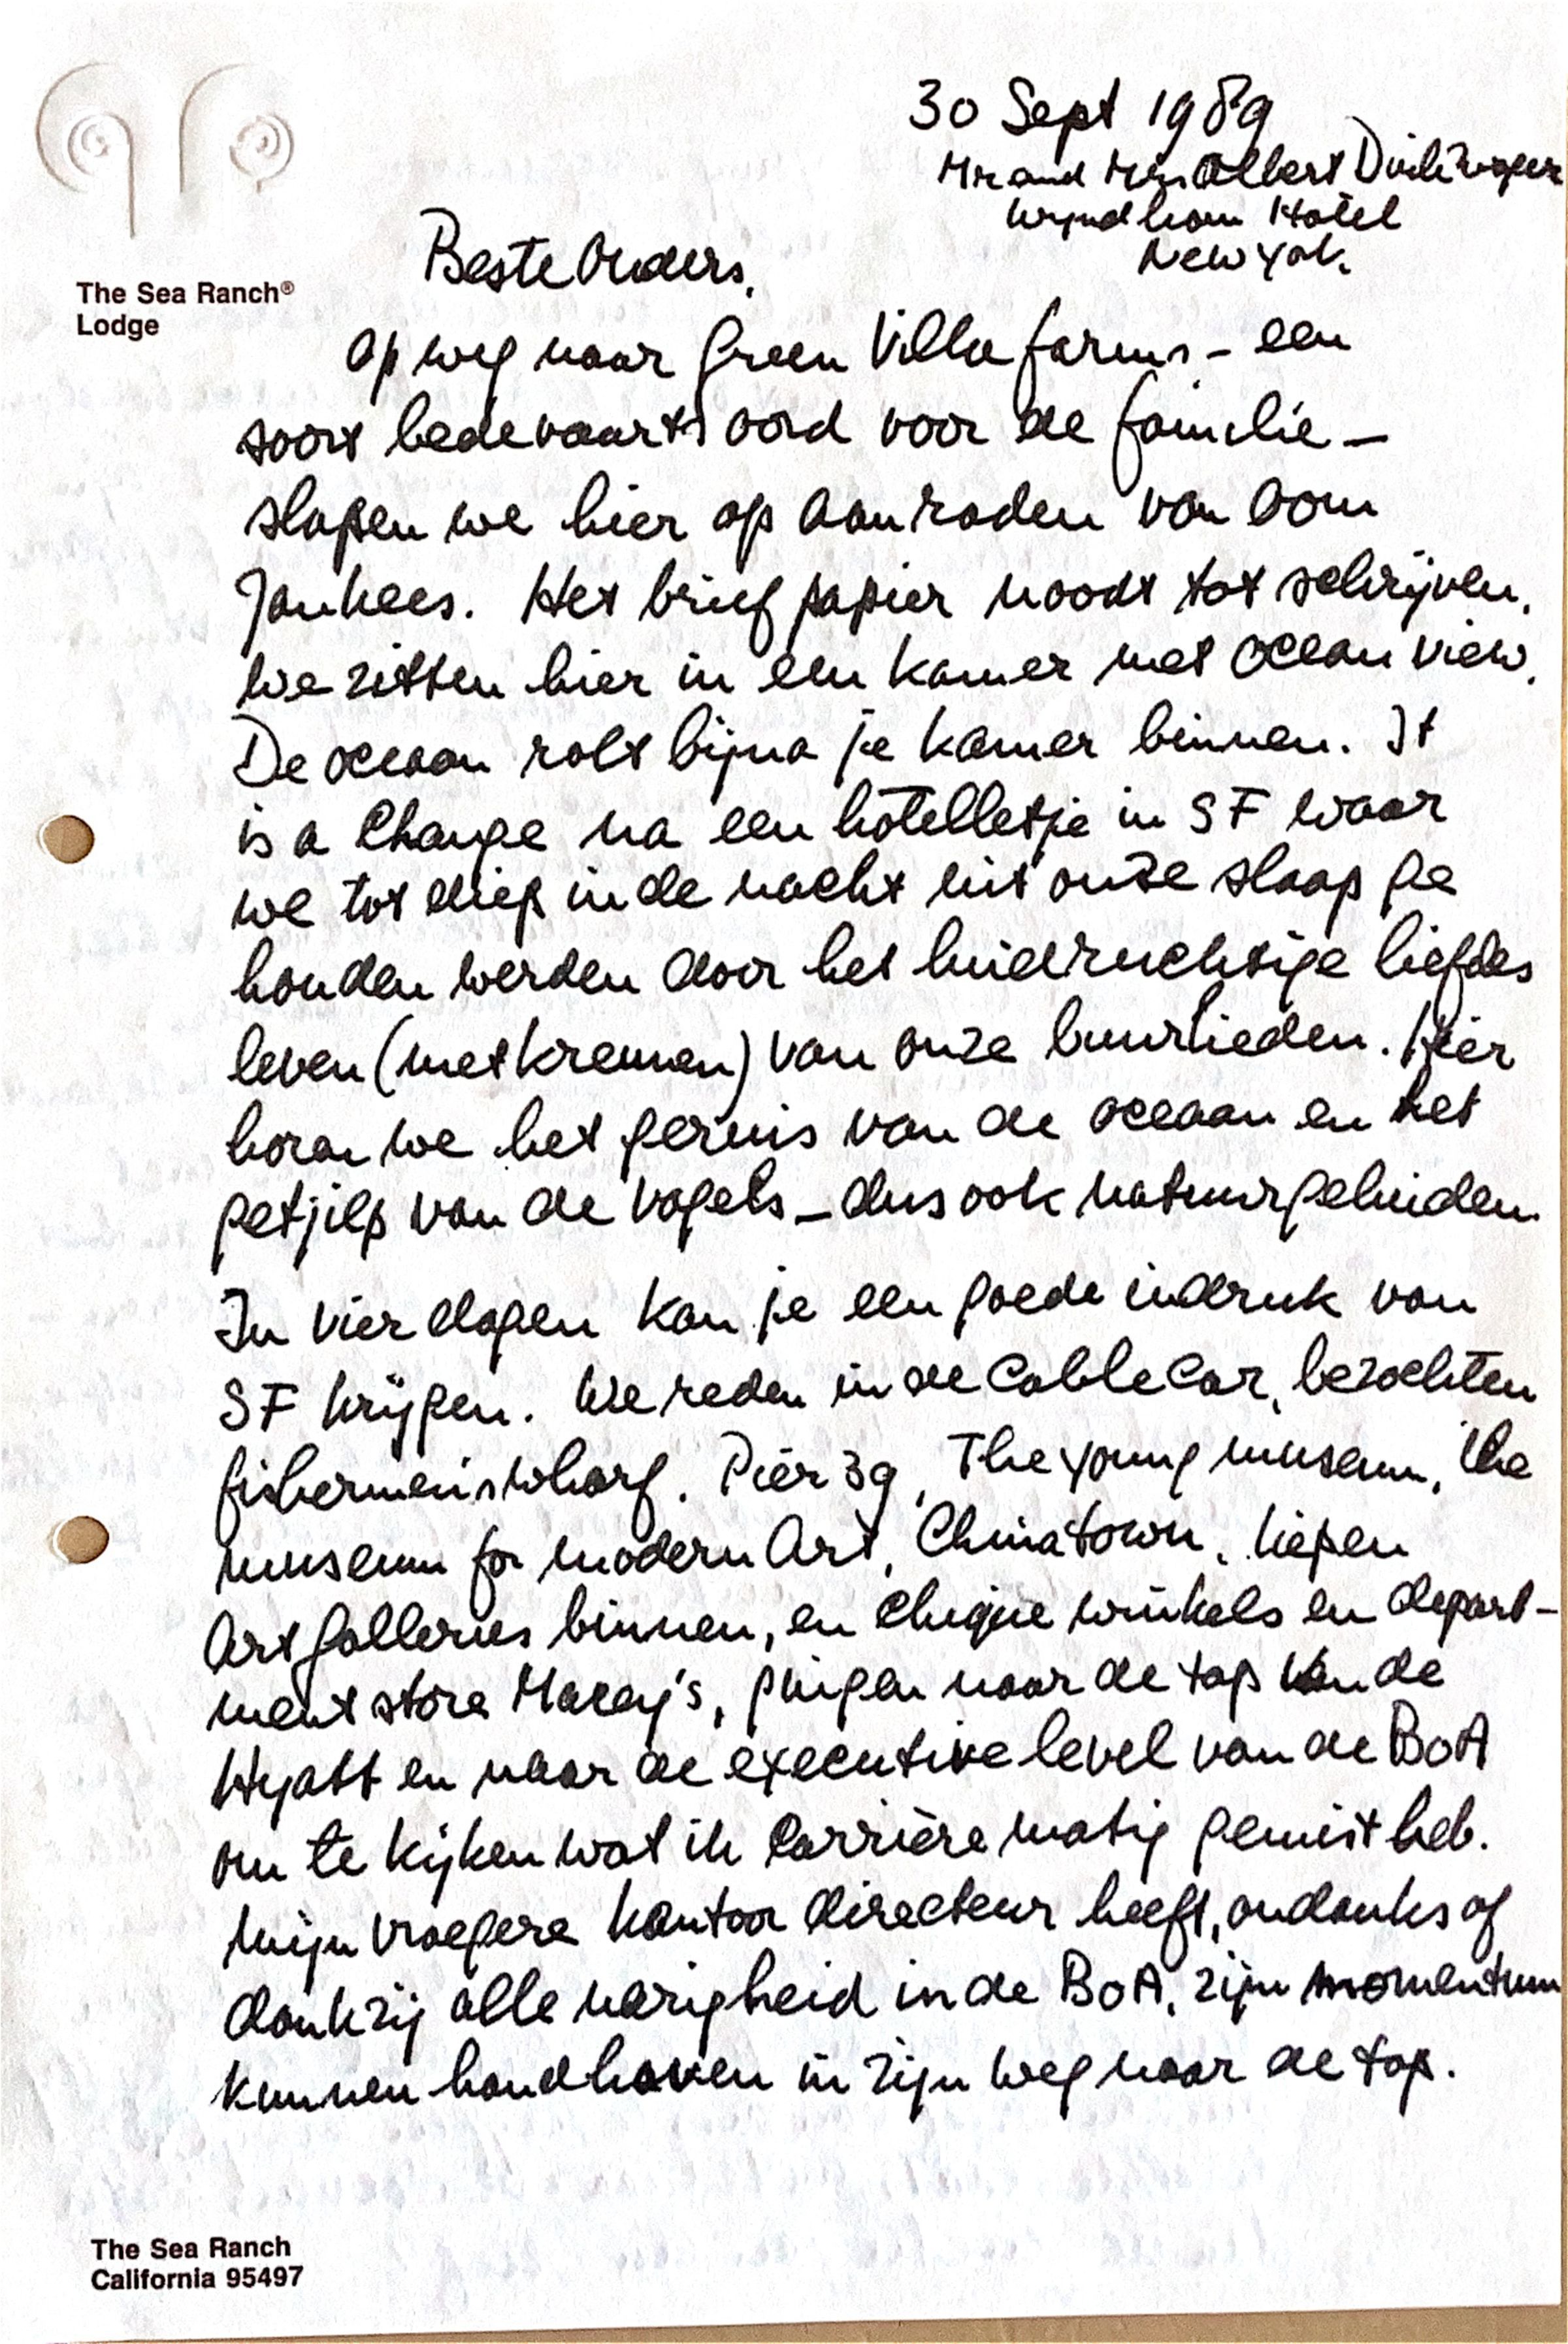 30 Sept 1989
Mr and Mrs Albert
Wyndham Hotel
New York.
The Sea Ranch®
Lodge
Beste Ouders,
op weg naar Green Villa farms - een
soort bedevaartsoord voor de familie -
slapen we hier op aanraden van oom
Jankees. Het briefpapier noodt tot schrijven.
We zitten hier in een kamer met ocean view.
De oceaan rolt bijna je kamer binnen. It
is a change na een hotelletje in SF waar
we tot diep in de nacht uit onze slaap ge
houden werden door het luidruchtige liefdes
leven (met kreunen) van onze buurlieden. Hier
horen we het geruis van de oceaan en het
getjilp van de vogels - dus ook natuurgeluiden.
In vier dagen kan je een goede indruk van
SF krijgen. We reden in de Cable Car, bezochten
fishermen's wharf, Pier 39, The Young museum, the
museum for modern Art, Chinatown, liepen
Art Galleries binnen, en chique winkels en depart-
ment store Macey's, gingen naar de top van de
Hyatt en naar de executive level van de BoA
om te kijken wat ik carrière matig gemist heb.
Mijn vroegere kantoor directeur heeft, ondanks of
dankzij alle narigheid in de BoA, zijn momentum
kunnen handhaven in zijn weg naar de top.
The Sea Ranch
California 95497